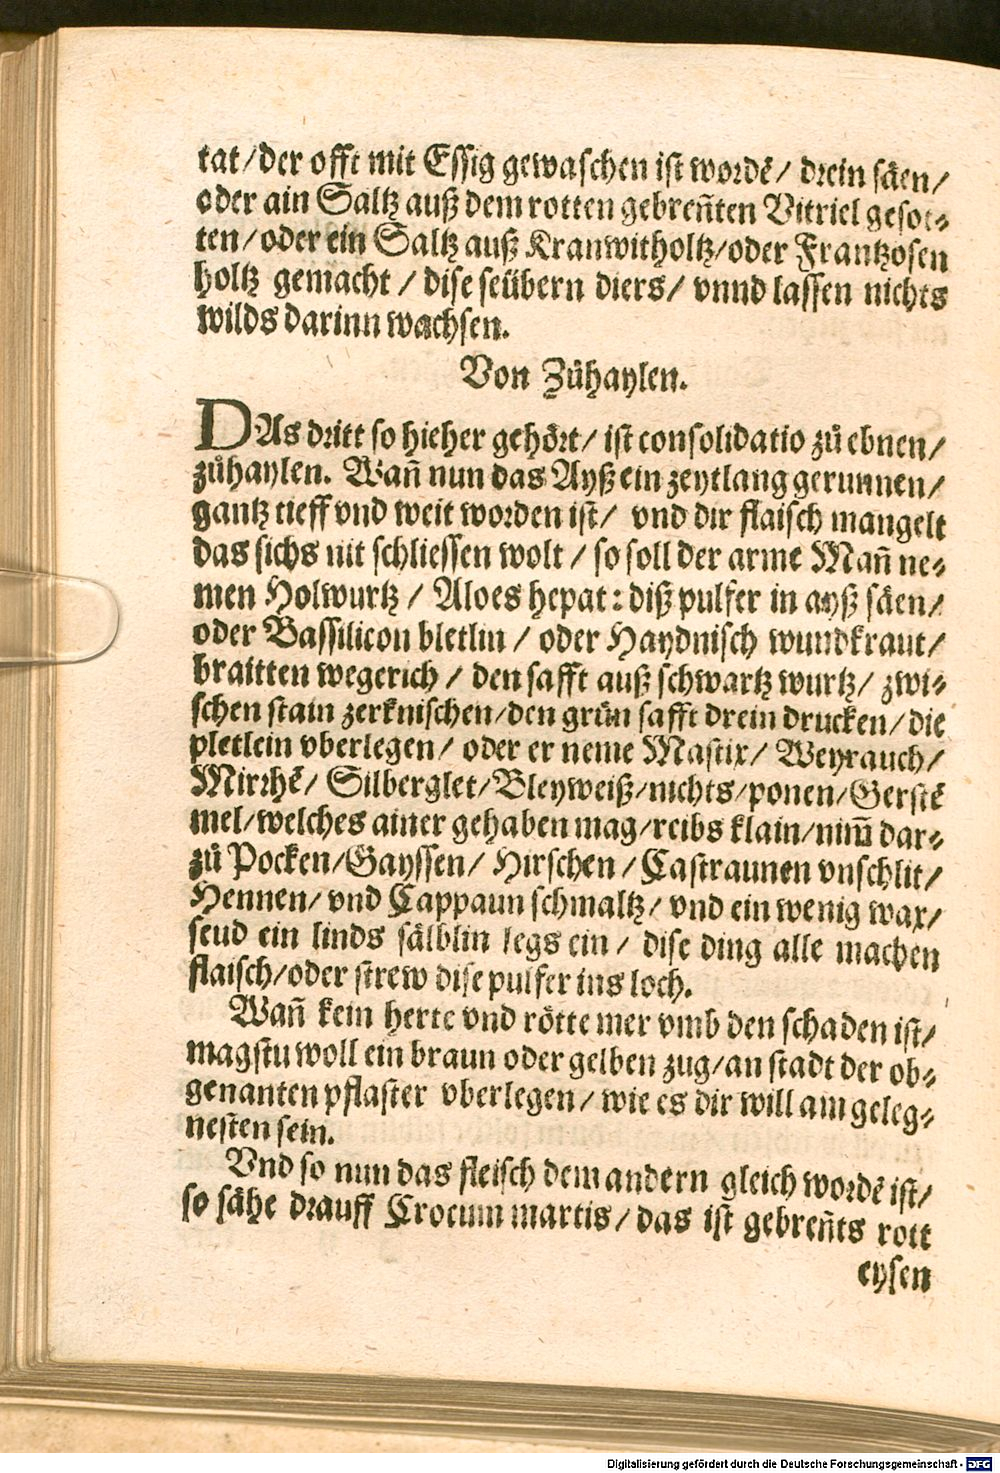 tat/der offt mit Essig gewaschen ist wordẽ/ drein säen/
oder ain Saltz auß dem rotten gebreñten Vitriel gesot⸗
ten/oder ein Saltz auß Kranwitholtz/oder Frantzosen
holtz gemacht / dise seübern diers/ vnnd lassen nichts
wilds darinn wachsen.
Von Zůhaylen.
DAs dritt so hieher gehört/ ist consolidatio zů ebnen/
zůhaylen. Wañ nun das Ayß ein zeytlang gerunnen/
gantz tieff vnd weit worden ist/ vnd dir flaisch mangelt
das sichs nit schliessen wolt / so soll der arme Mañ ne⸗
men Holwurtz / Aloes hepat: diß pulfer in ayß säen/
oder Bassilicon bletlin / oder Haydnisch wundkraut/
braitten wegerich / den safft auß schwartz wurtz/ zwi⸗
schen stain zerknischen/den grün safft drein drucken/die
pletlein vberlegen/ oder er neme Mastix/ Weyrauch/
Mirrhẽ/ Silberglet/Bleyweiß/nichts/ponen/Gerstẽ
mel/welches ainer gehaben mag/reibs klain/nim̃ dar⸗
zů Pocken/Gayssen/ Hirschen/Castraunen vnschlit/
Hennen/ vnd Cappaun schmaltz/ vnd ein wenig wax/
seud ein linds sälblin legs ein/ dise ding alle machen
flaisch/oder strew dise pulfer ins loch.
Wañ kein herte vnd rötte mer vmb den schaden ist/
magstu woll ein braun oder gelben zug/an stadt der ob⸗
genanten pflaster vberlegen/ wie es dir will am geleg⸗
nesten sein.
Vnd so nun das fleisch dem andern gleich wordẽ ist/
so sähe drauff Crocum martis/das ist gebreñts rott
eysen
Digitalisierung gefördert durch die Deutsche Forschungsgemeinschaft - DFG